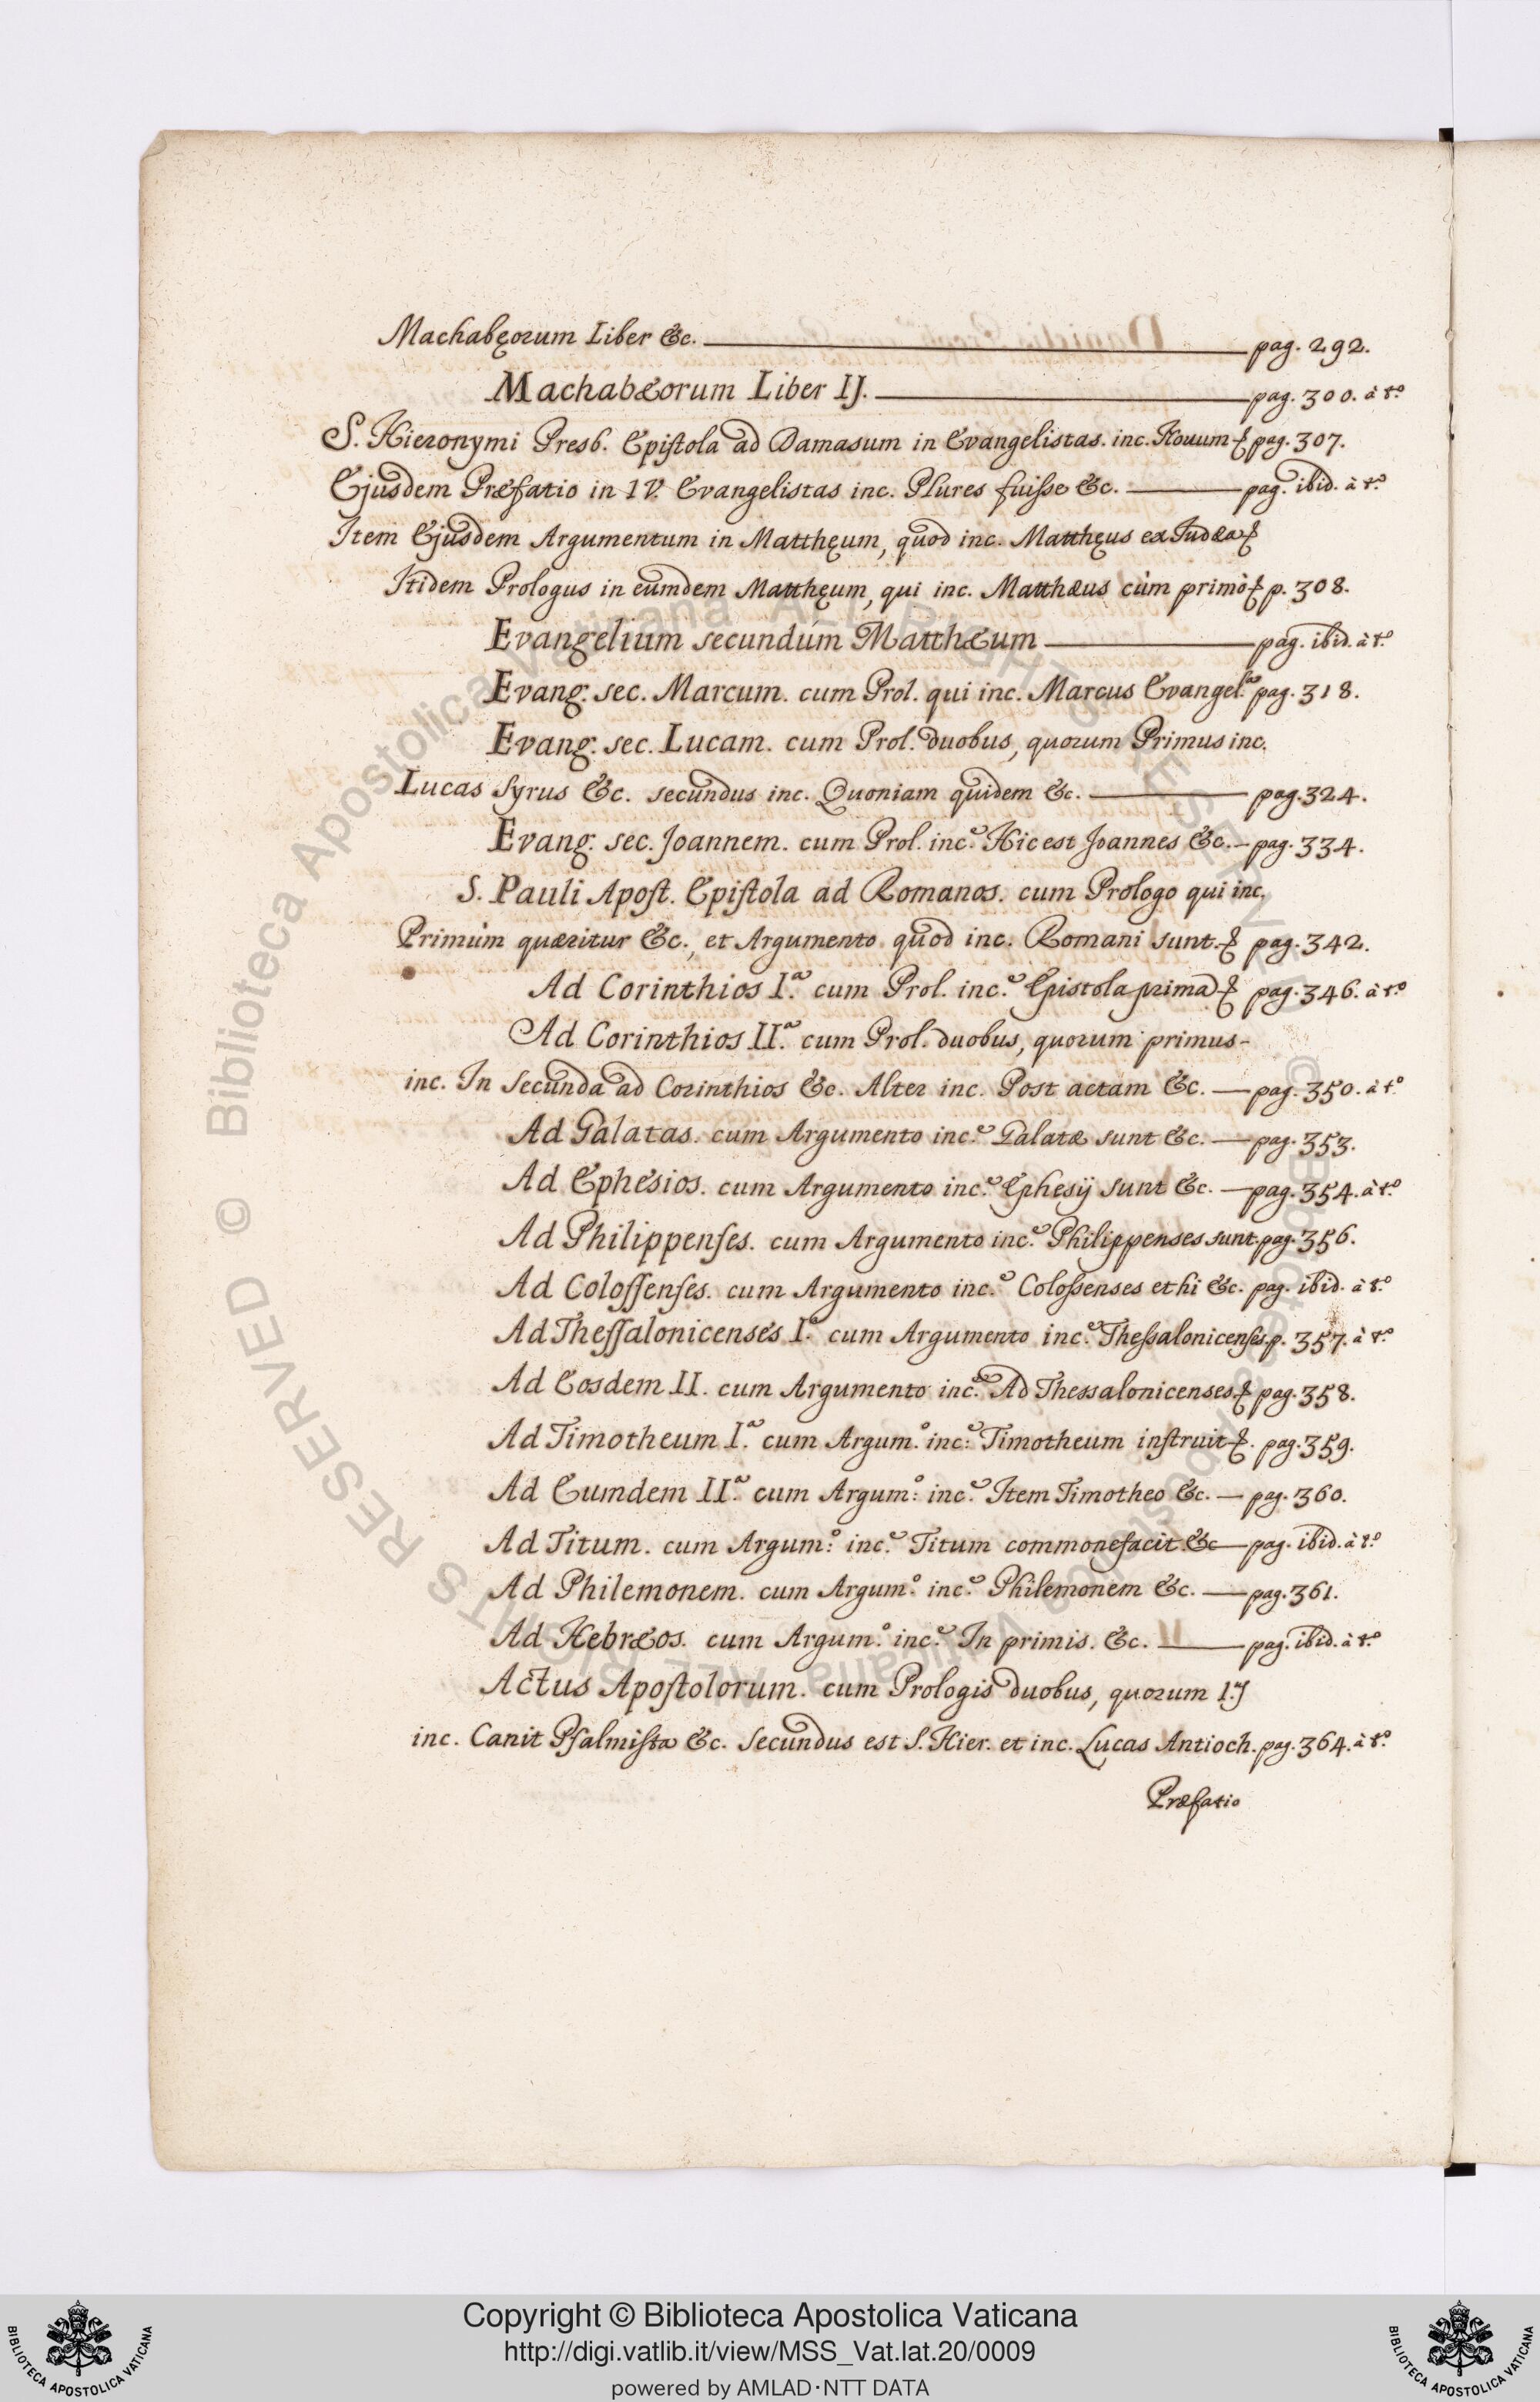 Machabęorum Liber &c. pag. 292.
Machabæorum Liber IJ. pag. 300. à t.º
S. Hieronymi Presb. Epistola ad Damasum in Evangelistas. inc. Nouum & pag. 307.
Ejusdem Præfatio in IV. Evangelistas inc. Plures fuisse &c. pag. ibid. à t.º
Item Ejusdem Argumentum in Matthęum, quod inc. Matthęus ex Iudæa &
Itidem Prologus in eumdem Matthęum, qui inc. Matthæus cùm primò & p. 308.
Evangelium secundùm Matthæum pag. ibid. à t.º
Evang. sec. Marcum. cum Prol. qui inc. Marcus Evangel.ª pag. 318.
Evang. sec. Lucam. cum Prol. duobus, quorum Primus inc.
Lucas Syrus &c. secundus inc. Quoniam quidem &c. pag. 324.
Evang. sec. Joannem. cum Prol. inc.e Hic est Joannes &c. pag. 334.
S. Pauli Apost. Epistola ad Romanos. cum Prologo qui inc.
Primùm quæritur &c., et Argumento quod inc. Romani sunt. & pag. 342.
Ad Corinthios I.ª cum Prol. inc.e Epistola prima & pag. 346. à t.º
Ad Corinthios II.ª cum Prol. duobus, quorum primus-
inc. In Secunda ad Corinthios &c. Alter inc. Post actam &c. pag. 350. à t.º
Ad Galatas. cum Argumento inc.e Galatæ sunt &c. pag. 353.
Ad Ephesios. cum Argumento inc.e Ephesij sunt &c. pag. 354. à t.º
Ad Philippenses. cum Argumento inc.e Philippenses sunt. pag. 356.
Ad Colossenses. cum Argumento inc.e Colossenses et hi &c. pag. ibid. à t.º
Ad Thessalonicenses I.ª cum Argumento inc.e Thessalonicenses p. 357. à t.º
Ad Eosdem II. cum Argumento inc.e Ad Thessalonicenses & pag. 358.
Ad Timotheum I.ª cum Argum.º inc.e Timotheum instruit &. pag. 359.
Ad Eumdem II.ª cum Argum.º inc.e Item Timotheo &c. pag. 360.
Ad Titum. cum Argum.º inc.e Titum commonefacit &c pag. ibid. à t.º
Ad Philemonem. cum Argum.º inc.e Philemonem &c. pag. 361.
Ad Hebræos. cum Argum.º inc.e In primis. &c. pag. ibid. à t.º
Actus Apostolorum. cum Prologis duobus, quorum 1.s
inc. Canit Psalmista &c. Secundus est S. Hier. et inc. Lucas Antioch. pag. 364. à t.º
Præfatio
© Biblioteca Apostolica Vaticana ALL RIGHTS RESERVED
© Biblioteca Apostolica Vaticana ALL RIGHTS RESERVED
Copyright © Biblioteca Apostolica Vaticana
http://digi.vatlib.it/view/MSS_Vat.lat.20/0009
powered by AMLAD·NTT DATA
BIBLIOTECA APOSTOLICA VATICANA
BIBLIOTECA APOSTOLICA VATICANA